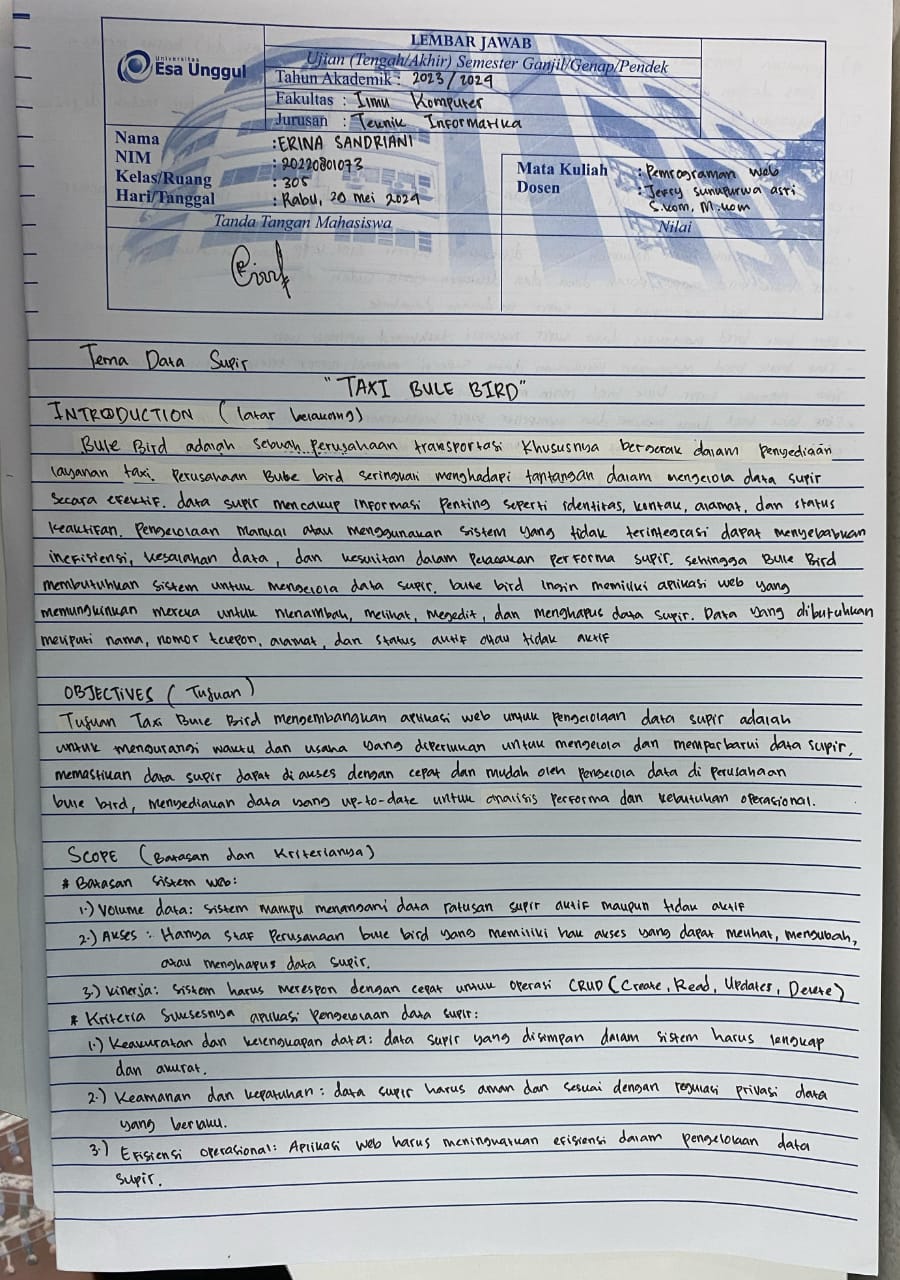 Universitas
Esa Unggul
LEMBAR JAWAB
Ujian (Tengah/Akhir) Semester Ganjil/Genap/Pendek
Tahun Akademik : 2023/2024
Fakultas : Ilmu Komputer
Jurusan : Teknik Informatika
Nama : ERINA SANDRIANI
NIM : 20220801073
Kelas/Ruang : 305
Hari/Tanggal : Rabu, 20 mei 2024
Mata Kuliah : Pemrograman web
Dosen : Jerry sunupurwa asri
S.kom, M.kom
Tanda Tangan Mahasiswa
Nilai
Tema Data Supir
"TAXI BULE BIRD"
INTRODUCTION (latar belakang)
Bule Bird adalah sebuah perusahaan transportasi khususnya bergerak dalam penyediaan
layanan taxi. Perusahaan Bube bird seringkali menghadapi tantangan dalam mengelola data supir
secara efektif. data supir mencakup informasi penting seperti identitas, kontak, alamat, dan status
keaktifan. Pengelolaan manual atau menggunakan sistem yang tidak terintegrasi dapat menyebabkan
inefisiensi, kesalahan data, dan kesulitan dalam pelacakan performa supir. sehingga Bule Bird
membutuhkan sistem untuk mengelola data supir. bule bird ingin memiliki aplikasi web yang
memungkinkan mereka untuk menambah, melihat, megedit, dan menghapus data supir. Data yang dibutuhkan
meliputi nama, nomor telepon, alamat, dan status aktif atau tidak aktif
OBJECTIVES (Tujuan)
Tujuan Taxi Bule Bird mengembangkan aplikasi web untuk pengelolaan data supir adalah
untuk mengurangi waktu dan usaha yang diperlukan untuk mengelola dan memperbarui data supir,
memastikan data supir dapat di akses dengan cepat dan mudah oleh pengelola data di perusahaan
bule bird, menyediakan data yang up-to-date untuk analisis performa dan kebutuhan operasional.
SCOPE (Batasan dan Kriterianya)
* Batasan sistem web:
1.) Volume data: sistem mampu menangani data ratusan supir aktif maupun tidak aktif
2.) Akses : Hanya staf perusahaan bule bird yang memiliki hak akses yang dapat melihat, mengubah,
atau menghapus data supir.
3.) kinerja: sistem harus merespon dengan cepat untuk operasi CRUD (Create, Read, Updates, Delete)
* Kriteria suksesnya aplikasi pengelolaan data supir:
1.) Keakuratan dan kelengkapan data: data supir yang disimpan dalam sistem harus lengkap
dan akurat.
2.) Keamanan dan kepatuhan : data supir harus aman dan sesuai dengan regulasi privasi data
yang berlaku.
3.) Efisiensi operasional: Aplikasi web harus meningkatkan efisiensi dalam pengelolaan data
supir.